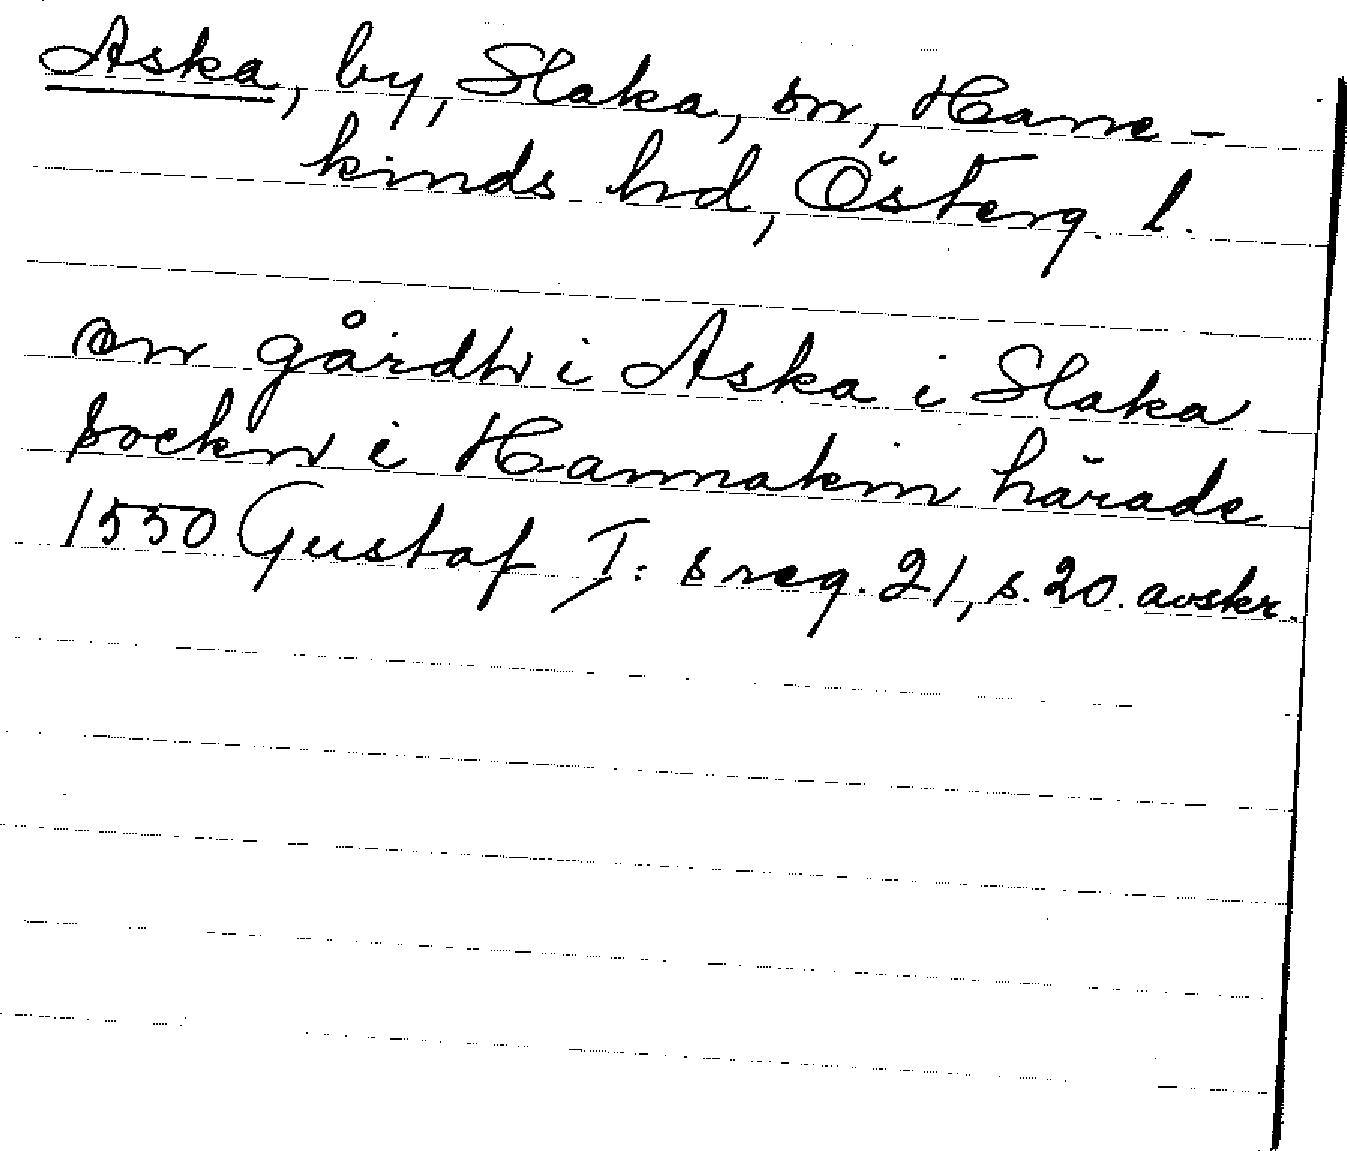 Aska, by, Slaka, sn, Hane-
kinds hd, Österg. l.
en gårdh i Aska i Slaka
sockn i Hannakin härade
1550 Gustaf I: s reg. 21, s. 20. avskr.